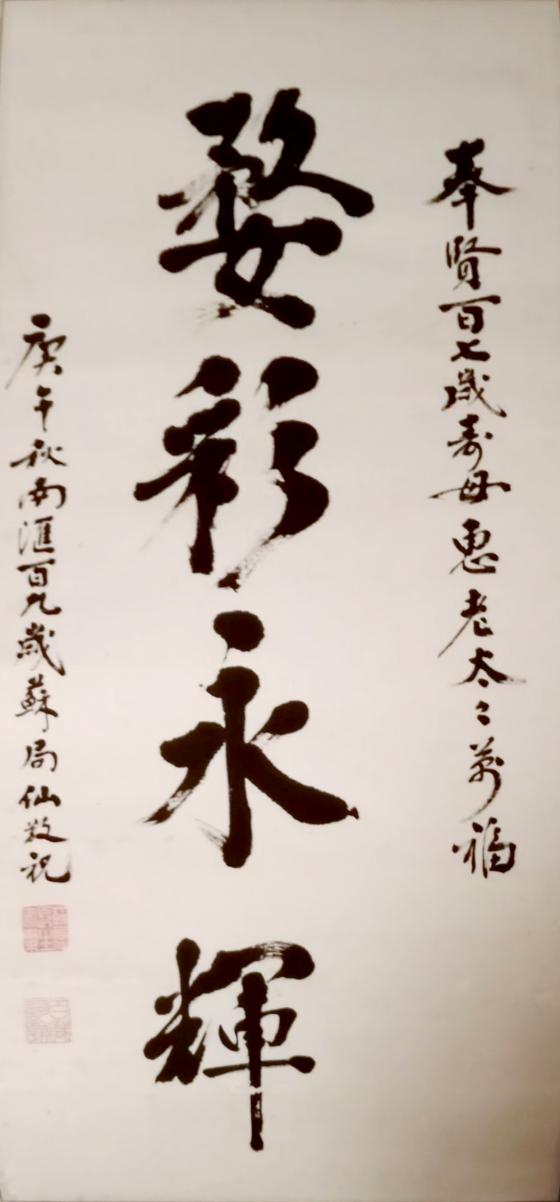 奉賢百七歲壽母惠老太々萬福
婺彩永輝
庚午秋南滙百九歲蘇局仙敬祝